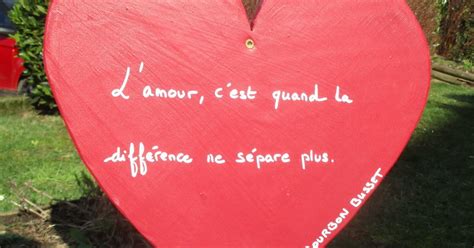 L'amour, c'est quand la
différence ne sépare plus.
OURBON BUSSET